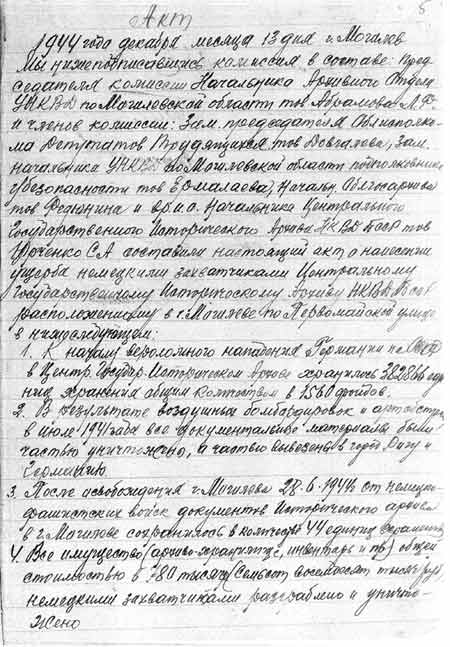 5
Акт
1944 года декабря месяца 13 дня г. Могилев
Мы нижеподписавшись комиссия в составе: Пред-
седателя комиссии Начальника Архивного Отдела
УНКВД по Могилевской области тов Абрамова
и членов комиссии: Зам. председателя Облисполко-
ма Депутатов Трудящихся тов Довгалева, Зам.
начальника УНКВД по Могилевской области подполковника
госбезопасности тов Ермалаева, Начальн. Облгосархива
тов Федюнина и врио. Начальника Центрального
Государственного Исторического Архива НКВД БССР тов
Юрченко С.А составили настоящий акт о нанесении
ущерба немецкими захватчиками Центральному
Государственному Историческому Архиву НКВД БССР
расположенному в г. Могилеве по Первомайской улице
в нижеследующем:
1. К началу вероломного нападения Германии на СССР
в Центр. Государ. Историческом Архиве хранилось 382866 еди
ниц хранения общим количеством в 2560 фондов.
2. В результате воздушных бомбардировок и артобстрела
в июле 1941 года все документальные материалы были
частью уничтожены, а частью вывезены в город Ригу и
Германию
3. После освобождения г. Могилева 28-6-1944г от немецко-
фашистских войск документов Исторического архива
в г. Могилеве сохранилось в количестве 44 единиц хранения
4. Все имущество (архиво-хранилище, инвентарь и пр) общей
стоимостью в 780 тысяч (Семьсот восемьдесят тысяч руб)
немецкими захватчиками разграблено и уничто-
жено